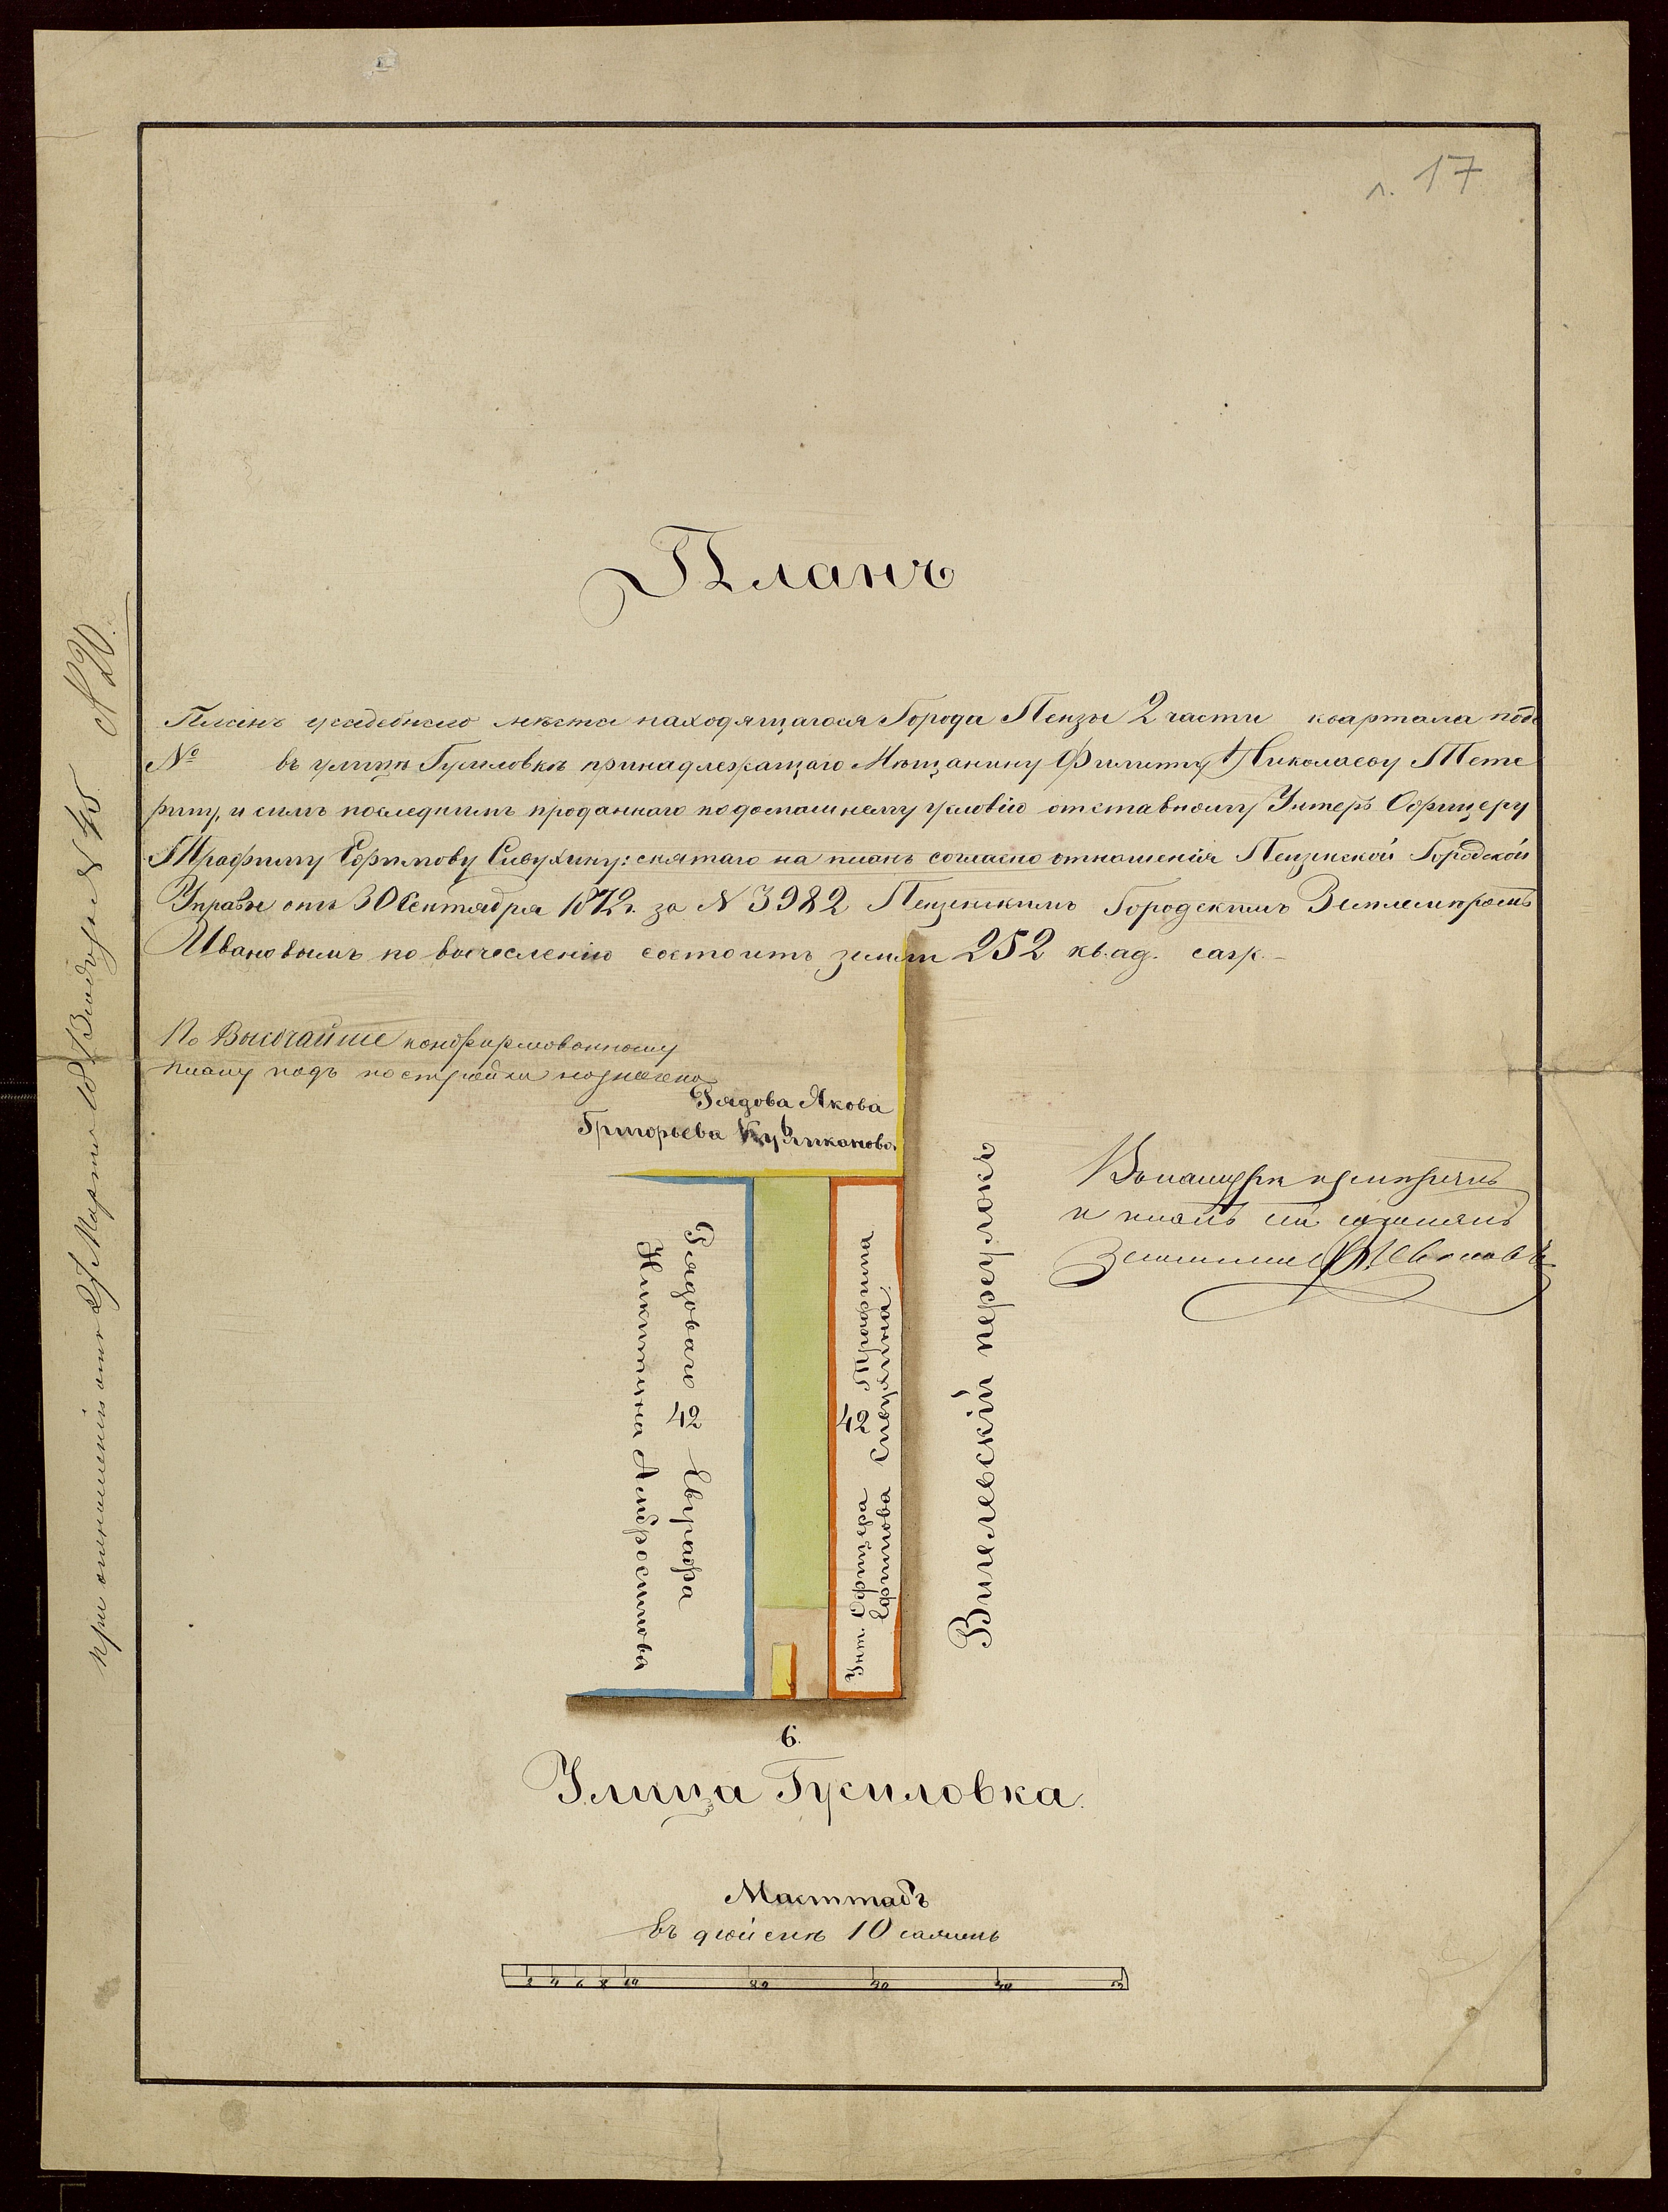 л. 17
Планъ
Планъ усадебнаго мѣста находящагося Города Пензы 2 части квартала подъ
№ въ улицѣ Гусиловкѣ принадлежащаго Мѣщанину Филиппу Николаеву Тете
рину, и симъ последнимъ проданнаго подомашнему условію отставному Унтеръ Офицеру
Трафиму Ефимову Сивухину: снятаго на планъ согласно отношенія Пензенской Городской
Управы отъ 30 Сентября 1872 г. за N 3982 Пензенскимъ Городскимъ Землемѣромъ
Ивановымъ по вычесленію состоитъ земли 252 квад. саж.
По Высочайше конфирмованному
плану подъ постройки назначено
Рядова Якова
Григорьева
Рядоваго 42 Евграфа
Никитина Амбросимова
Унт. Офицера 42 Трафима
Ефимова
Вигелевскій переулокъ
и планъ сей
6.
Улица Гусиловка.
Масштабъ
Въ дюймѣ 10 сажень
2 4 6 8 10 20 30 40 50
При отношеніи отъ 27 Марта N 45
N 20.